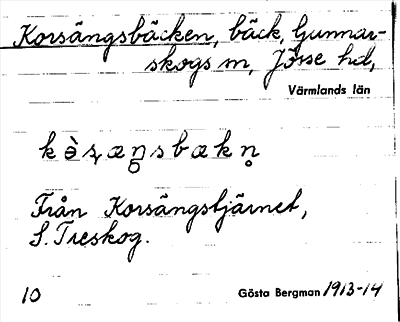 Korsängsbäcken, bäck, Gunnar-
skogs sn, Jösse hd,
Värmlands län
Från Korsängstjärnet,
S. Treskog.
10 Gösta Bergman 1913-14